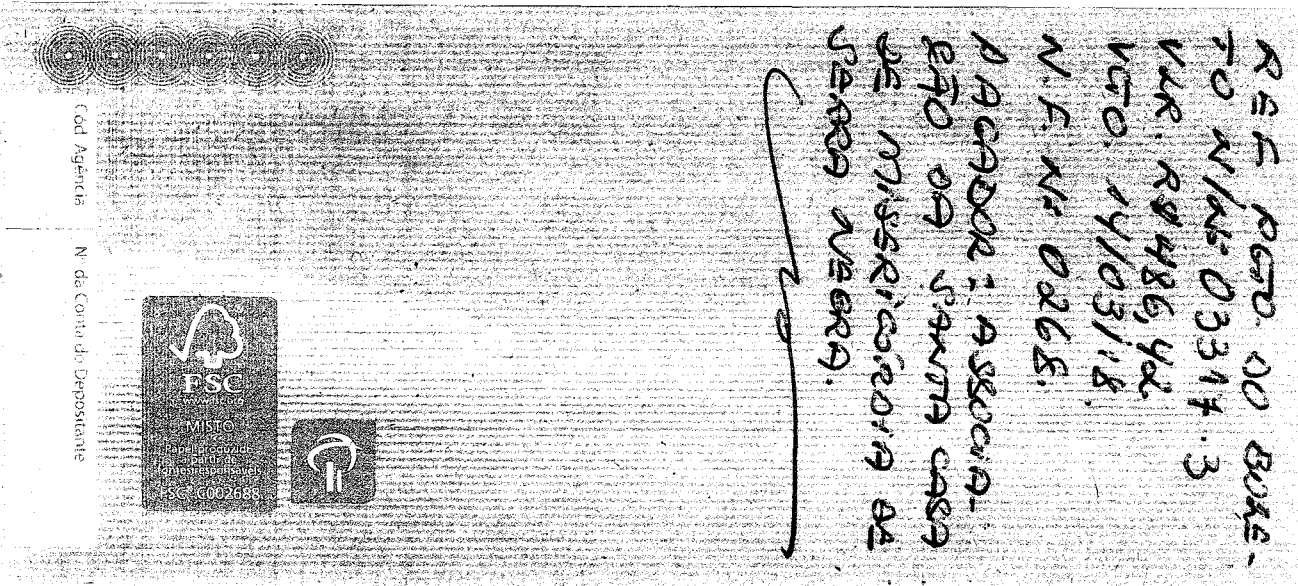 REF PGTO. DO BOLE-
TO N/Nº 03317.3
VLR. R$ 486,42
VCTO. 14/03/18.
N.F. Nº 0268.
PAGADOR: ASSOCIA-
ÇÃO DA SANTA CASA
DE MISERICÓRDIA DE
SERRA NEGRA.
Cód Agência
N da Conta do Depositante
FSC
www.fsc.org
MISTO
Papel produzido
fonte responsável
FSC® C002688